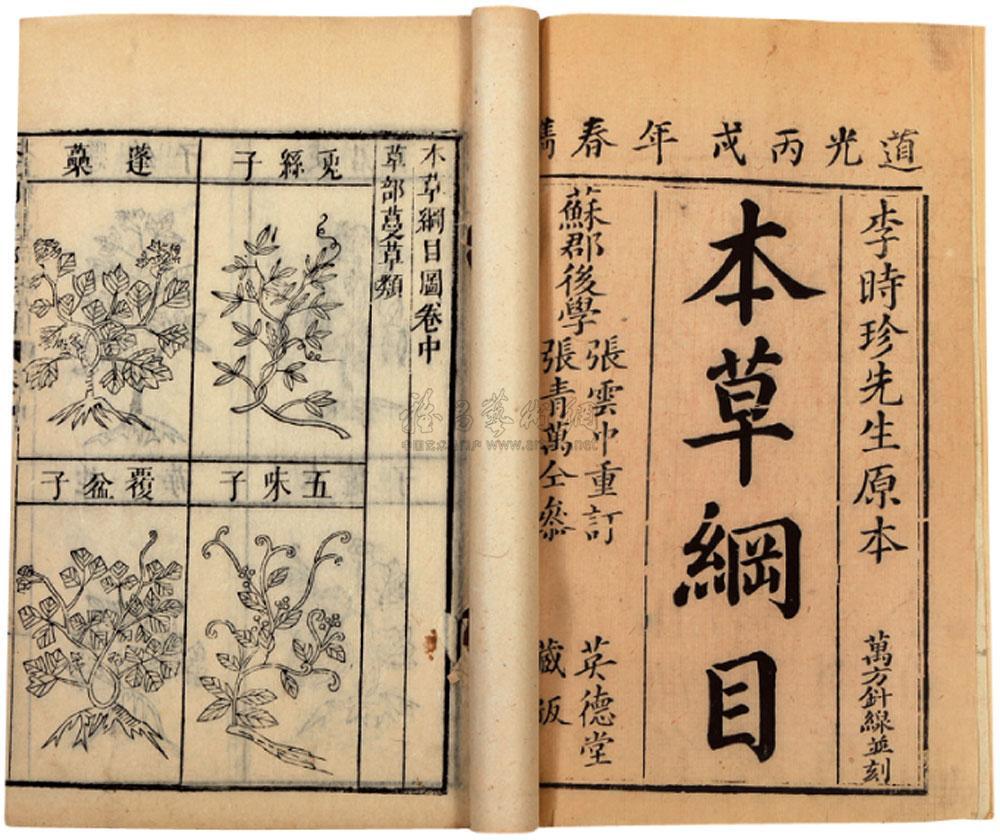 道光丙戌年春鐫
李時珍先生原本
萬方針線並刻
本草綱目
蘇郡後學
張雲中重訂
張青萬仝參
英德堂
藏板
本草綱目圖卷中
草部蔓草類
兎絲子
蓬藥
五味子
覆盆子
www.ar